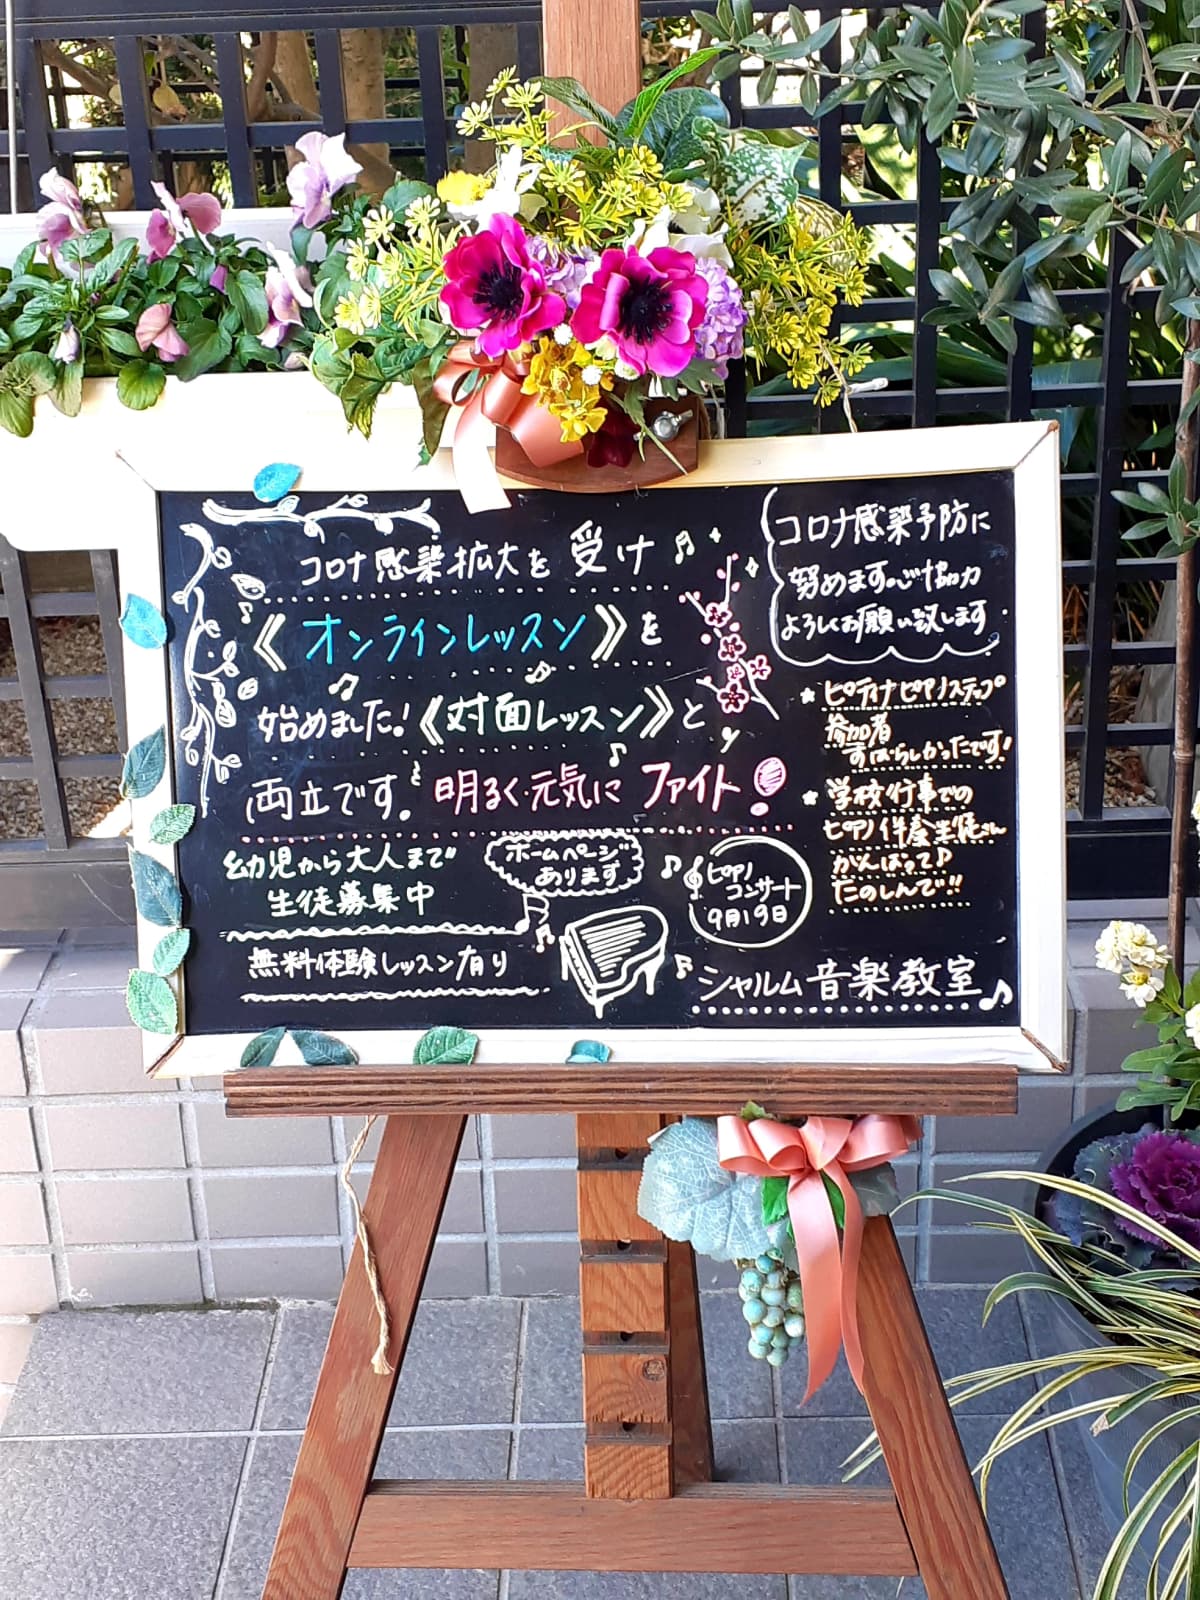 コロナ感染拡大を受け
《オンラインレッスン》を
始めました!《対面レッスン》と
両立です。明るく元気に ファイト!
幼児から大人まで
生徒募集中
無料体験レッスン有り
ホームページ
あります
ピアノ
コンサート
9月19日
シャルム音楽教室
コロナ感染予防に
努めます。ご協力
よろしくお願い致します
*ピティナピアノステップ
参加者
すばらしかったです!
*学校行事での
ピアノ伴奏生徒さん
がんばって♪
たのしんで!!